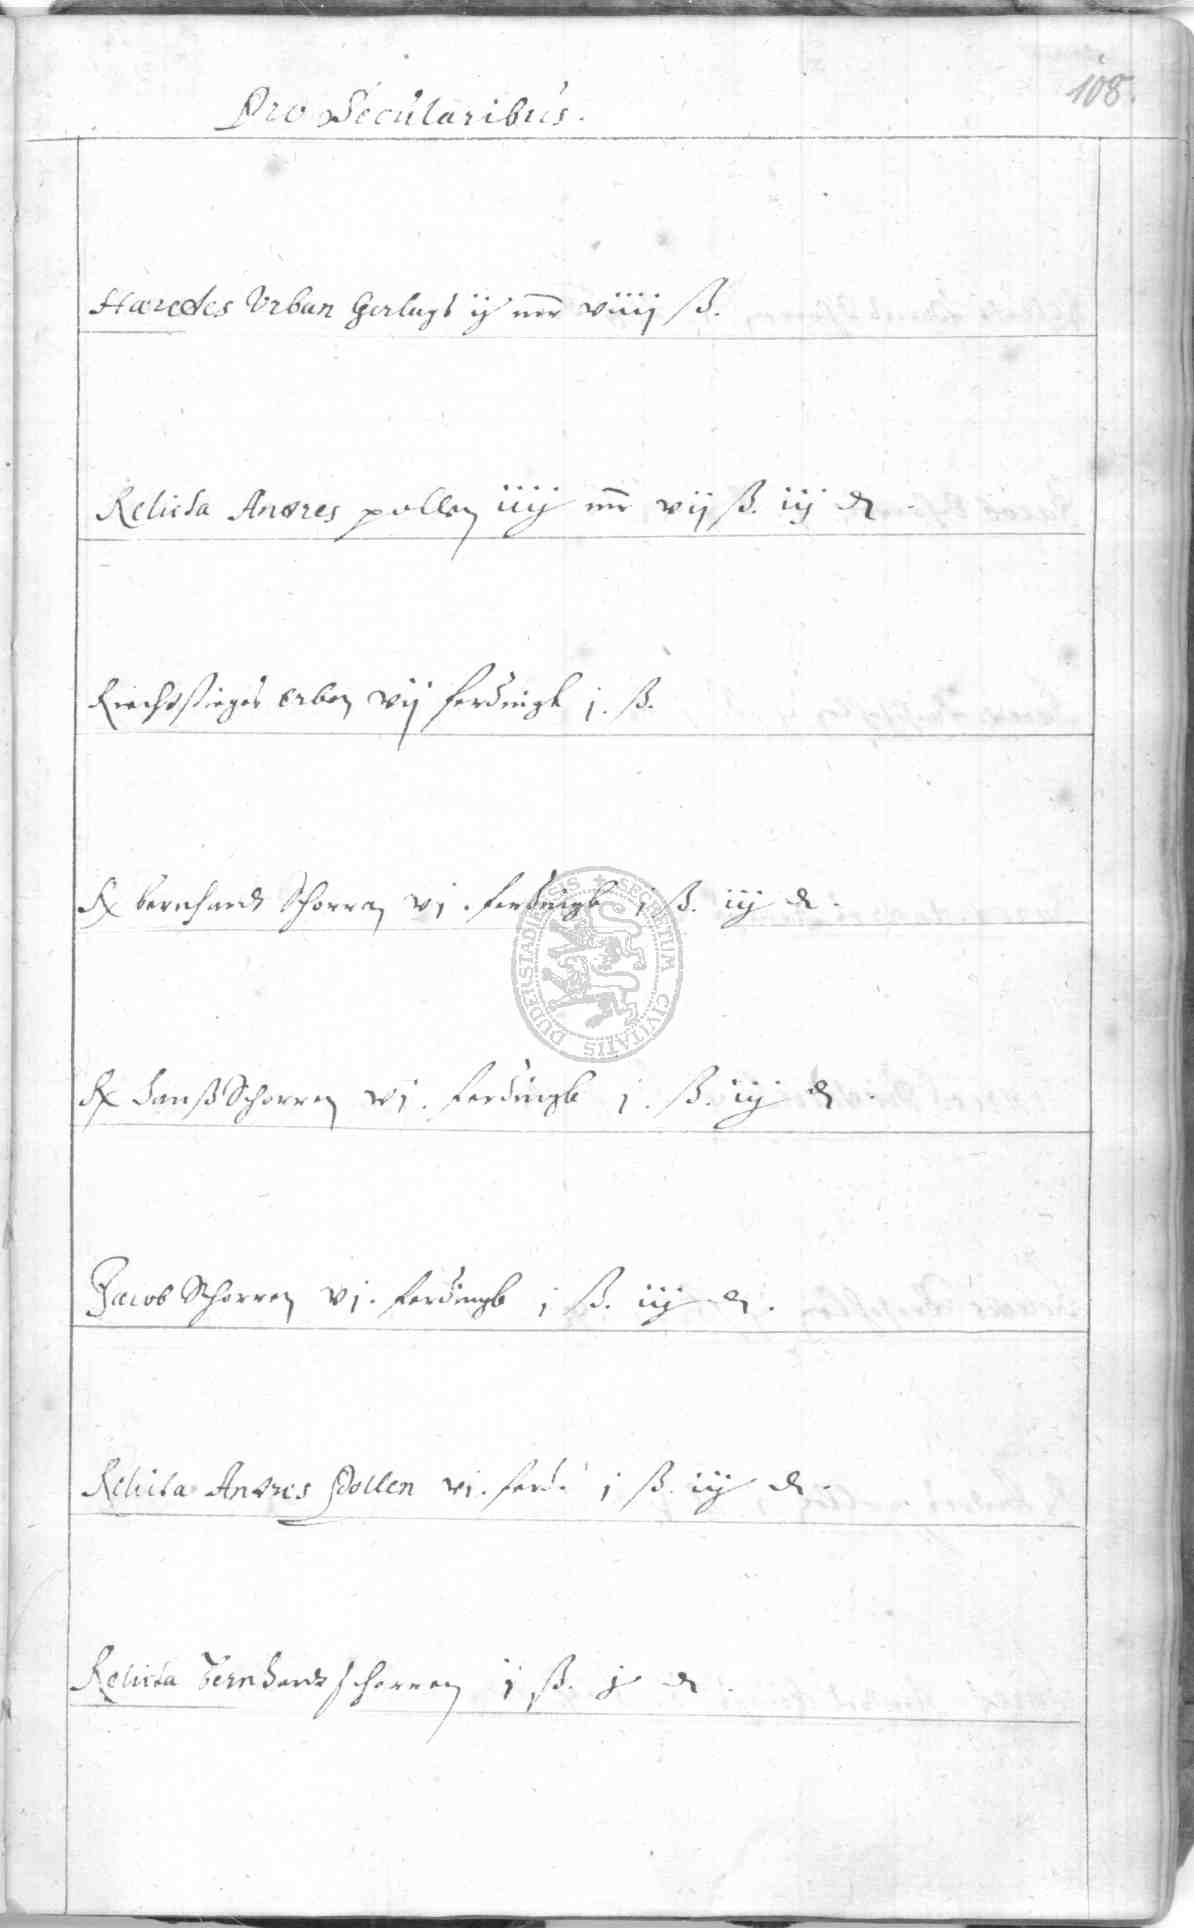 108.
Pro Secularibus.
Hæredes Vrban Gerlags ij mr viiij ß.
Relicta Andres pollen iiij mr vij ß. iij d
erben vij ferdingk j. ß.
Bernhardt Schorren vj. ferdingk j ß. iij d.
Hanß Schorren vj. ferdingk j. ß. iij d.
Jacob Schorren vj. ferdingk j ß. iij d.
Relicta Andres Pollen vj. ferd. j ß. iij d.
Relicta Bernhardt schorren j ß. j d.
SECRETUM CIVITATIS DUDERSTADENSIS